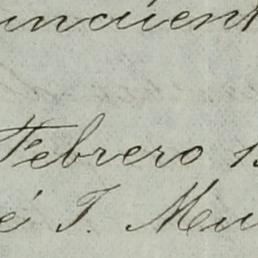 incuent
Febrero 1
é T. Mu